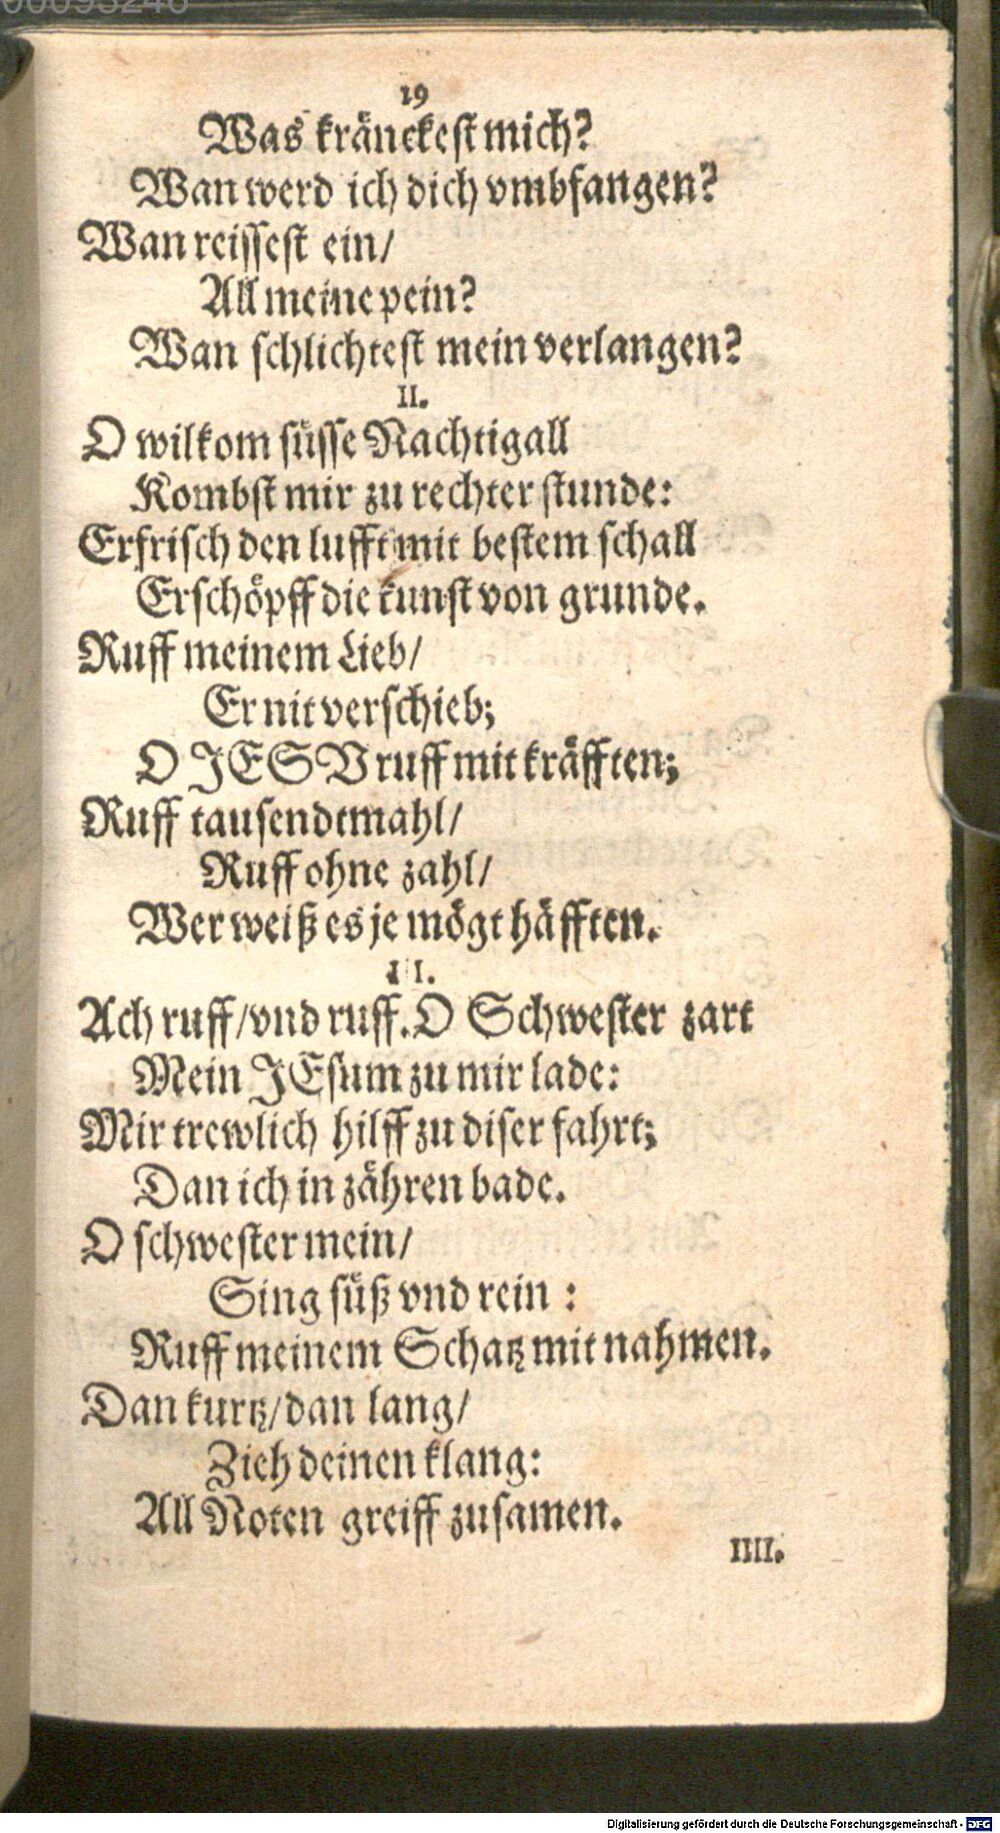 00093246
19
Was kränckest mich?
Wan werd ich dich vmbfangen?
Wan reissest ein/
All meine pein?
Wan schlichtest mein verlangen?
II.
O wilkom süsse Nachtigall
Kombst mir zu rechter stunde:
Erfrisch den lufft mit bestem schall
Erschöpff die kunst von grunde.
Ruff meinem Lieb/
Er nit verschieb;
O JESV ruff mit kräfften;
Ruff tausendtmahl/
Ruff ohne zahl/
Wer weiß es je mögt häfften.
III.
Ach ruff/vnd ruff. O Schwester zart
Mein JEsum zu mir lade:
Mir trewlich hilff zu diser fahrt;
Dan ich in zähren bade.
O schwester mein/
Sing süß vnd rein :
Ruff meinem Schatz mit nahmen.
Dan kurtz/dan lang/
Zieh deinen klang:
All Noten greiff zusamen.
IIII.
Digitalisierung gefördert durch die Deutsche Forschungsgemeinschaft - DFG